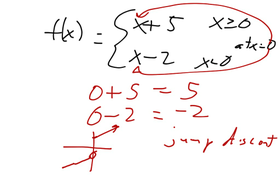 f(x) = { x+5 x≥0
at x=0
x-2 x<0
0+5 = 5
0-2 = -2
jump discont